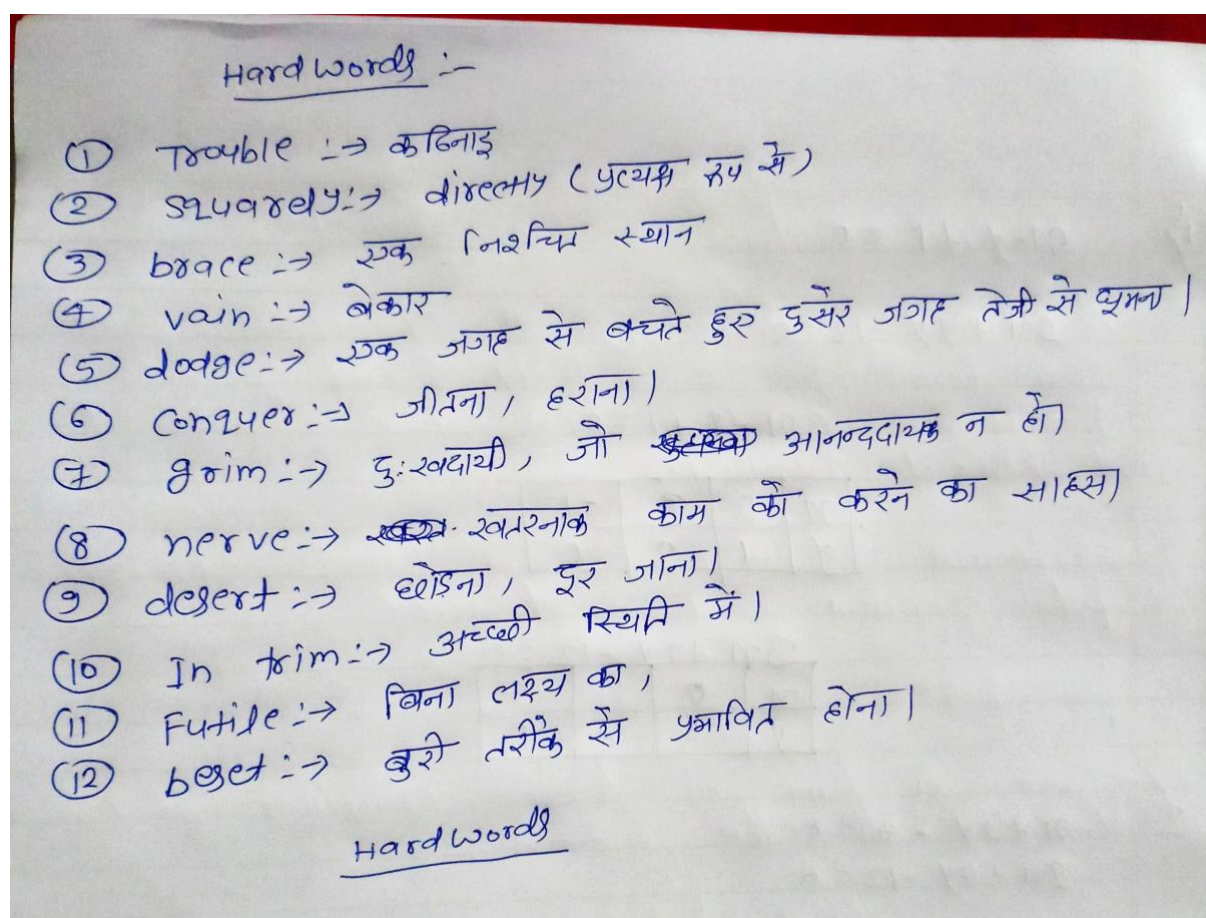 Hard words :-
① Trouble :→ कठिनाइ
② squarely :→ directly (प्रत्यक्ष रूप से)
③ brace :→ एक निश्चित स्थान
④ vain :→ बेकार
⑤ dodge :→ एक जगह से बचते हुए दुसरे जगह तेजी से घूमना ।
⑥ conquer :→ जीतना, हराना ।
⑦ grim :→ दुःखदायी, जो आनन्ददायक न हो ।
⑧ nerve :→ खतरनाक काम को करने का साहस ।
⑨ desert :→ छोडना, दूर जाना ।
⑩ In trim :→ अच्छी स्थिति में ।
⑪ Futile :→ बिना लक्ष्य का,
⑫ beset :→ बुरी तरीके से प्रभावित होना ।
Hard words